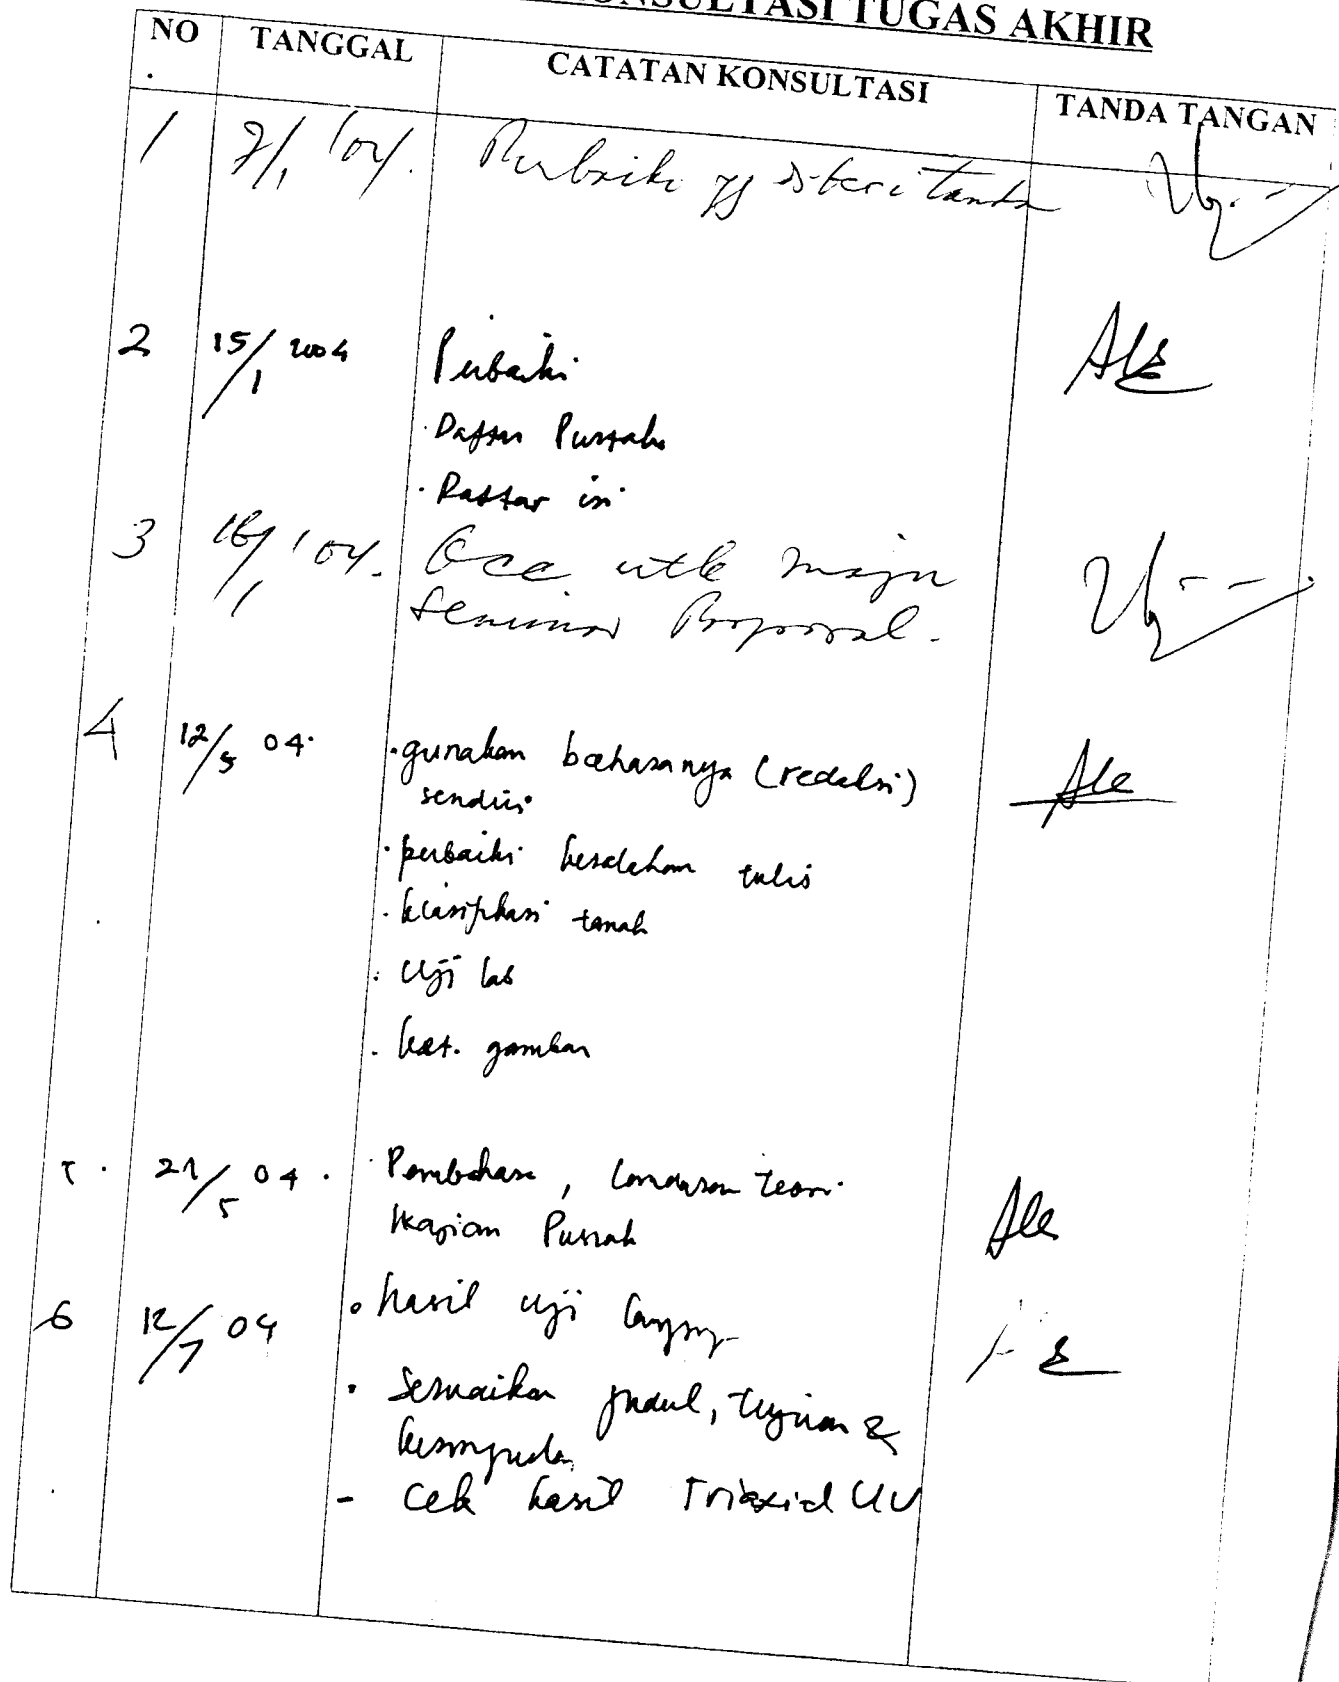 KONSULTASI TUGAS AKHIR
NO. TANGGAL CATATAN KONSULTASI TANDA TANGAN
1 7/1 '04. Perbaiki yg diberi tanda
2 15/1 2004 Perbaiki
· Daftar Pustaka
· Daftar isi
3 16/1 '04. Acc utk maju
Seminar Proposal.
4 12/5 04. · gunakan bahasanya (redaksi)
sendiri
· perbaiki kesalahan tulis
· klasifikasi tanah
· Uji lab
· ket. gambar
5. 21/5 04. · Pembahasan, landasan teori
Kajian Pustak
6 12/7 04 · hasil uji
· Sesuaikan judul, tujuan &
kesimpulan
- Cek hasil Triaxial UU